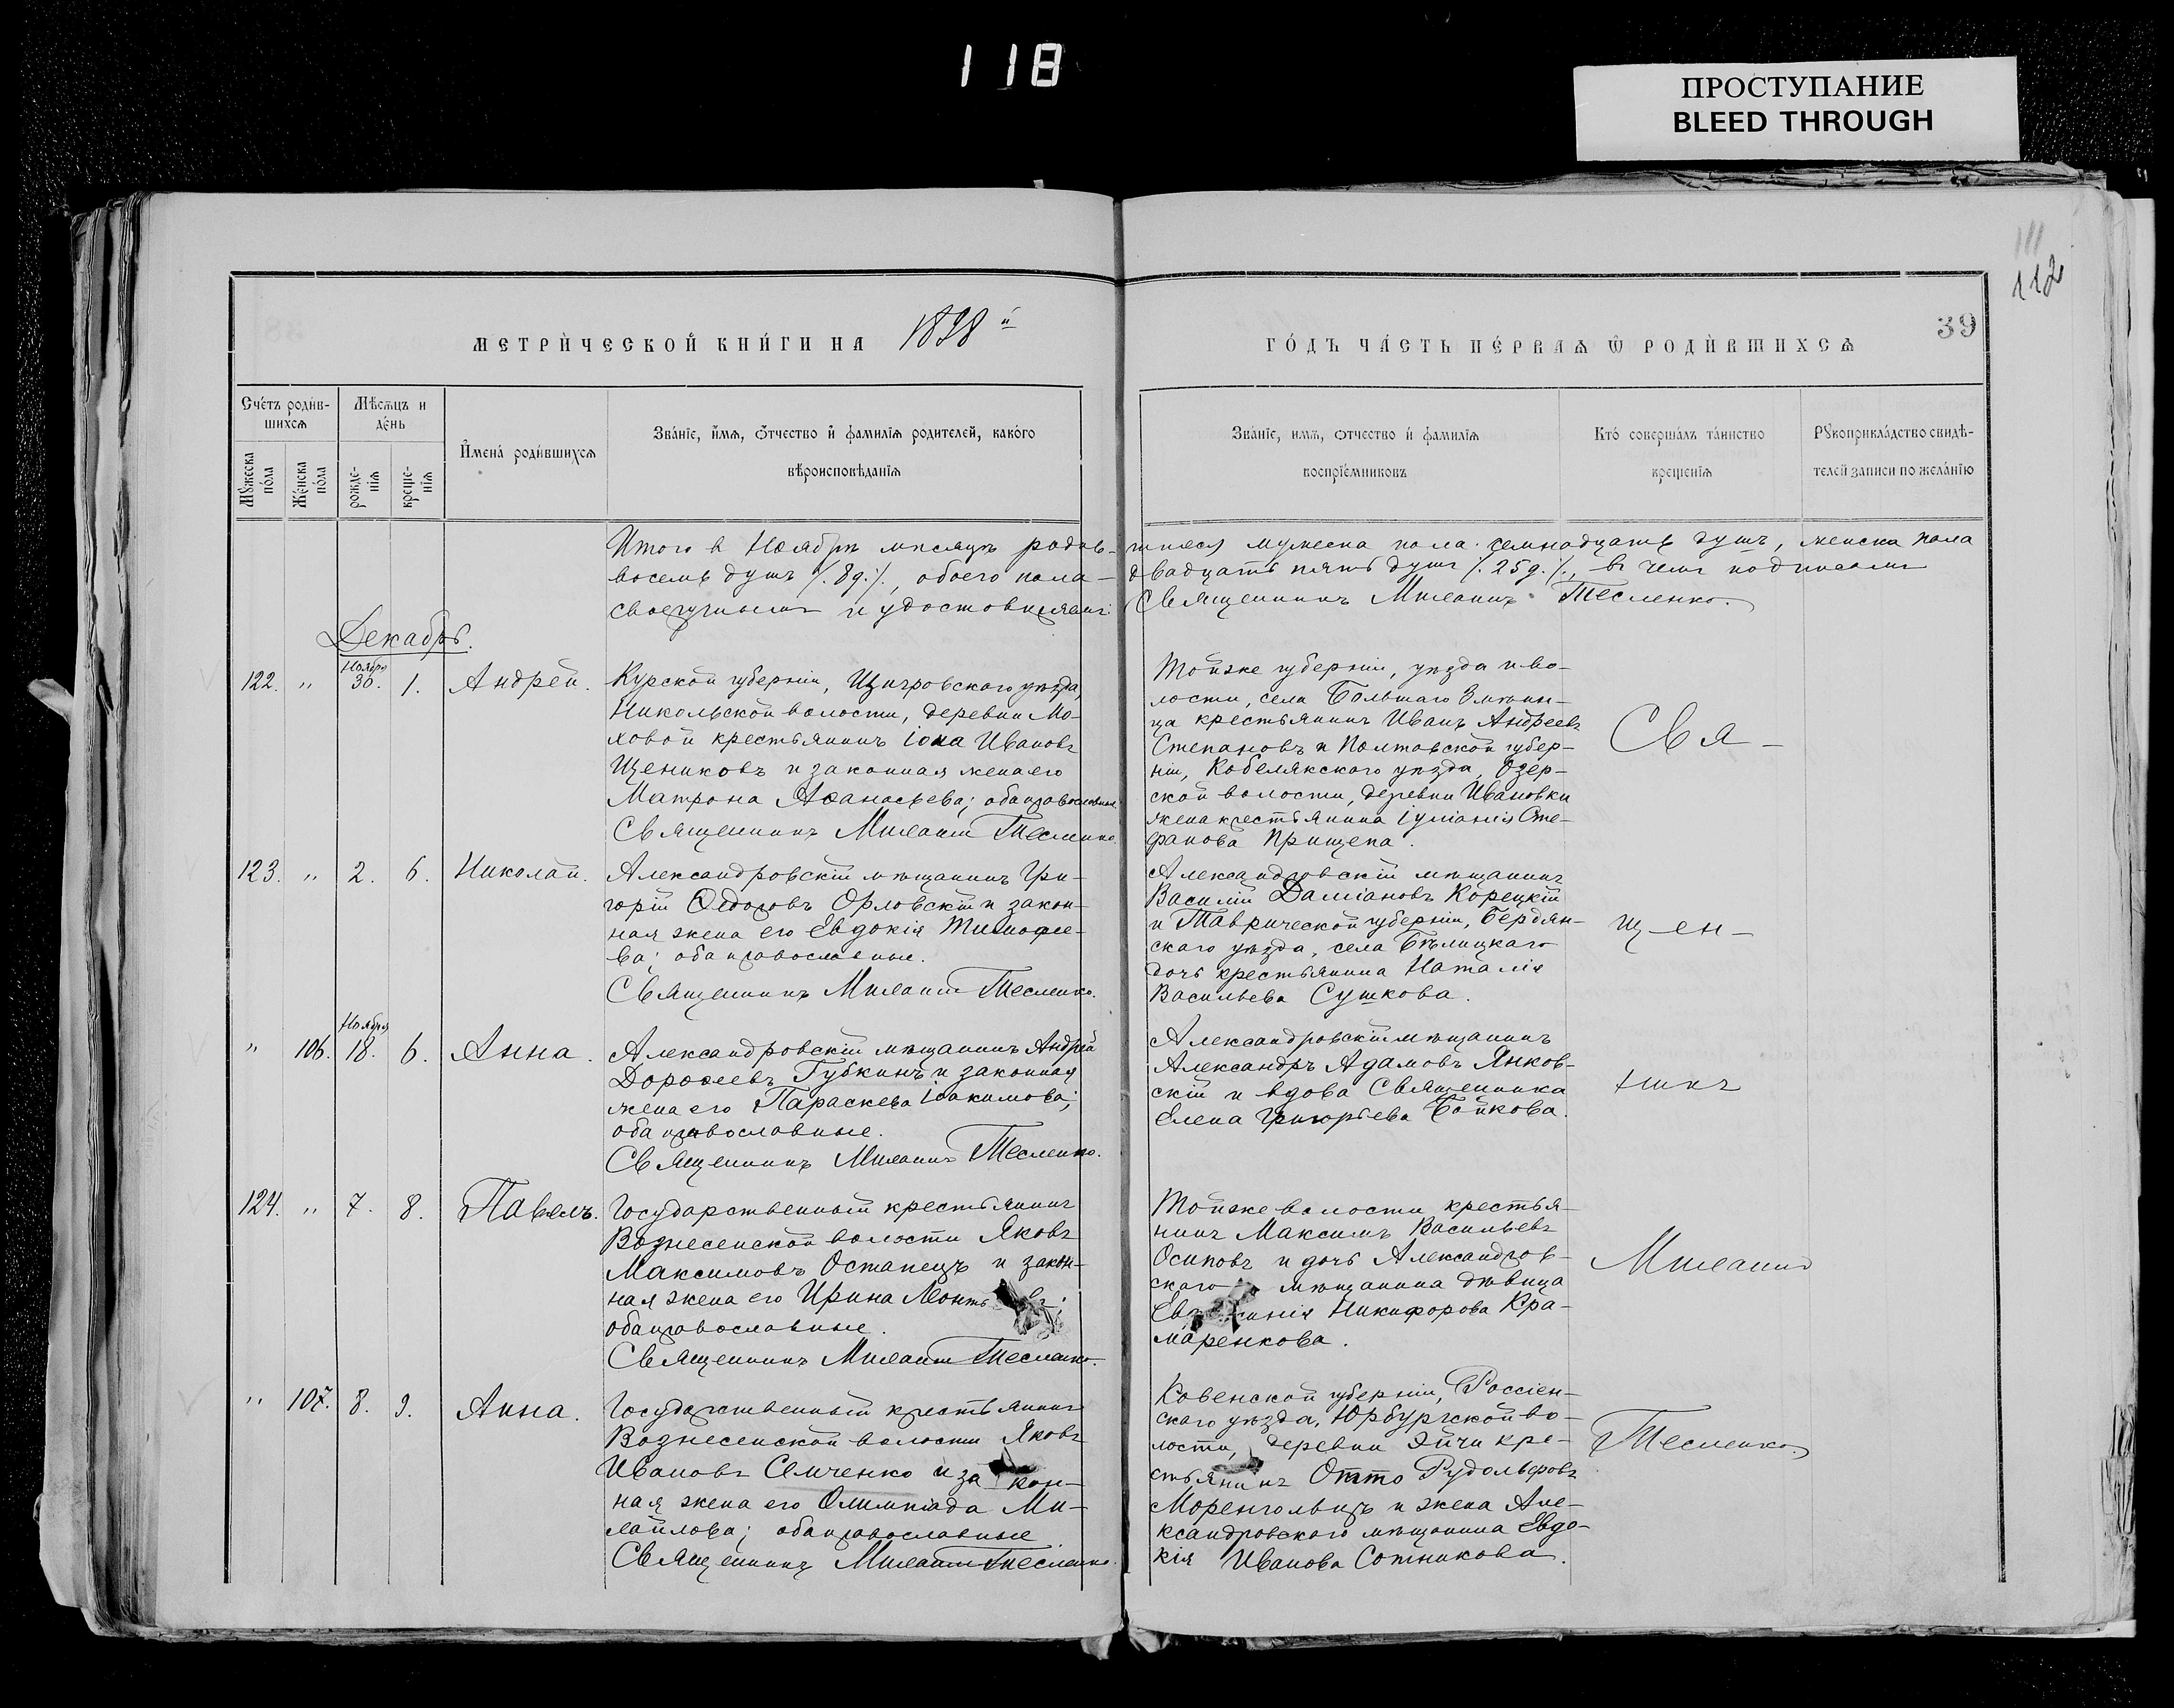 118
ПРОСТУПАНИЕ
BLEED THROUGH
111
112
39
МЕТРИ́ЧЕСКОЙ КНИ́ГИ НА 1898й
ГО́ДЪ ЧА́СТЬ ПЕ́РВАѦ Ѿ РОДИ́ВШИХСѦ
Сче́тъ роди́в-
шихсѧ
Мѣ́сѧцъ и
де́нь
Мꙋ́жеска
по́ла
Же́нска
по́ла
рожде-
нїѧ
креще-
нїѧ
И҆мена̀ роди́вшихсѧ
Зва́нїе, и҆́мѧ, ѻ҆́тчество и҆ фамилїѧ родителей, како́го
вѣ̑роисповѣ́данїѧ
Зва́нїе, имѧ, ѻтчество и҆ фамилїѧ
воспрїе́мниковъ
Кто̀ соверша́лъ та́инство
креще́нїѧ
Рꙋкоприкла́дство свидѣ́-
телей записи по жела́нїю
Итого в Ноябрѣ мѣсяцѣ родив-
шихся мужеска пола семнадцать душъ, женска пола
восемь душъ /. 8 д. /., обоего пола
двадцать пять душъ /. 25 д. /., въ чемъ подписомъ
своеручнымъ и удостовѣряемъ:
Священникъ Михаилъ Тесленко.
Декабрь.
122. " Ноября 30. 1. Андрей.
Курской губерніи, Щигровскаго уѣзда,
Никольской волости, деревни Мо-
ховой крестьянинъ Іона Ивановъ
Щениковъ и законная жена его
Матрона Аѳанасьева; оба православные.
Священникъ Михаилъ Тесленко.
Тойже губерніи, уѣзда и во-
лости, села Большаго Змѣин-
ца крестьянинъ Иванъ Андреевъ
Степановъ и Полтавской губер-
ніи, Кобелякскаго уѣзда, Озер-
ской волости, деревни Ивановки
жена крестьянина Іуліанія Сте-
фанова Прищепа.
Свя-
123. " 2. 6. Николай.
Александровскій мѣщанинъ Гри-
горій Ѳедоровъ Орловскій и закон-
ная жена его Евдокія Тимофее-
ва; оба православные.
Священникъ Михаилъ Тесленко.
Александровскій мѣщанинъ
Василій Даміановъ Корецкій
и Таврической губерніи, Бердян-
скаго уѣзда, села Бѣлицкаго
дочь крестьянина Наталія
Васильева Сушкова.
щ-ен-
" 106. Ноября 18. 6. Анна.
Александровскій мѣщанинъ Андрей
Дороѳеевъ Губкинъ и законная
жена его Параскева Іоакимова;
оба православные.
Священникъ Михаилъ Тесленко.
Александровскій мѣщанинъ
Александръ Адамовъ Янков-
скій и вдова Священника
Елена Григорьева Бойкова.
никъ
124. " 7. 8. Павелъ.
Государственный крестьянинъ
Вознесенской волости Яковъ
Максимовъ Остапецъ и закон-
ная жена его Ирина Леонть
оба православные.
Священникъ Михаилъ Тесленко.
Тойже волости крестья-
нинъ Максимъ Васильевъ
Осиповъ и дочь Александров-
скаго мѣщанина дѣвица
Никифорова Кра-
маренкова.
Михаилъ
" 107. 8. 9. Анна.
Государственный крестьянинъ
Вознесенской волости Яковъ
Ивановъ Семченко и закон-
ная жена его Олимпіада Ми-
хайлова; оба православные
Священникъ Михаилъ Тесленко.
Ковенской губерніи, Россіен-
скаго уѣзда, Юрбургской во-
лости, деревни Эйчи кре-
стьянинъ Отто Рудольфовъ
Моренгольцъ и жена Але-
ксандровскаго мѣщанина Евдо-
кія Иванова Сотникова.
Тесленко